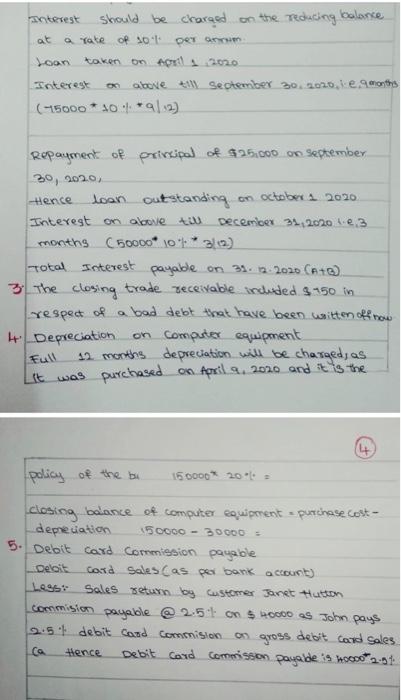 Interest should be charged on the reducing balance
at a rate of 10% per annum.
Loan taken on April 1, 2020
Interest on above till September 30, 2020, i.e, 9 months
(75000 * 10% * 9/12)
Repayment of principal of $25,000 on september
30, 2020,
Hence loan outstanding on october 1 2020
Interest on above till December 31, 2020 i.e, 3
months (50000* 10% * 3/12)
Total Interest payable on 31.12.2020 (A+B)
3. The closing trade receivable included $ 150 in
respect of a bad debt that have been written off now
4. Depreciation on Computer equipment
Full 12 months depreciation will be charged, as
it was purchased on April 9, 2020 and it is the
4
policy of the bu 150000* 20% =
closing balance of computer equipment = purchase cost -
depreciation 150000 - 30000 =
5. Debit Card Commission payable
Debit Card Sales (as per bank account)
Less: Sales return by customer Janet Hutton
commision payable @ 2.5% on $ 40000 as John pays
2.5% debit card commision on gross debit card sales
(a Hence Debit Card Commission payable is 40000*2.5%